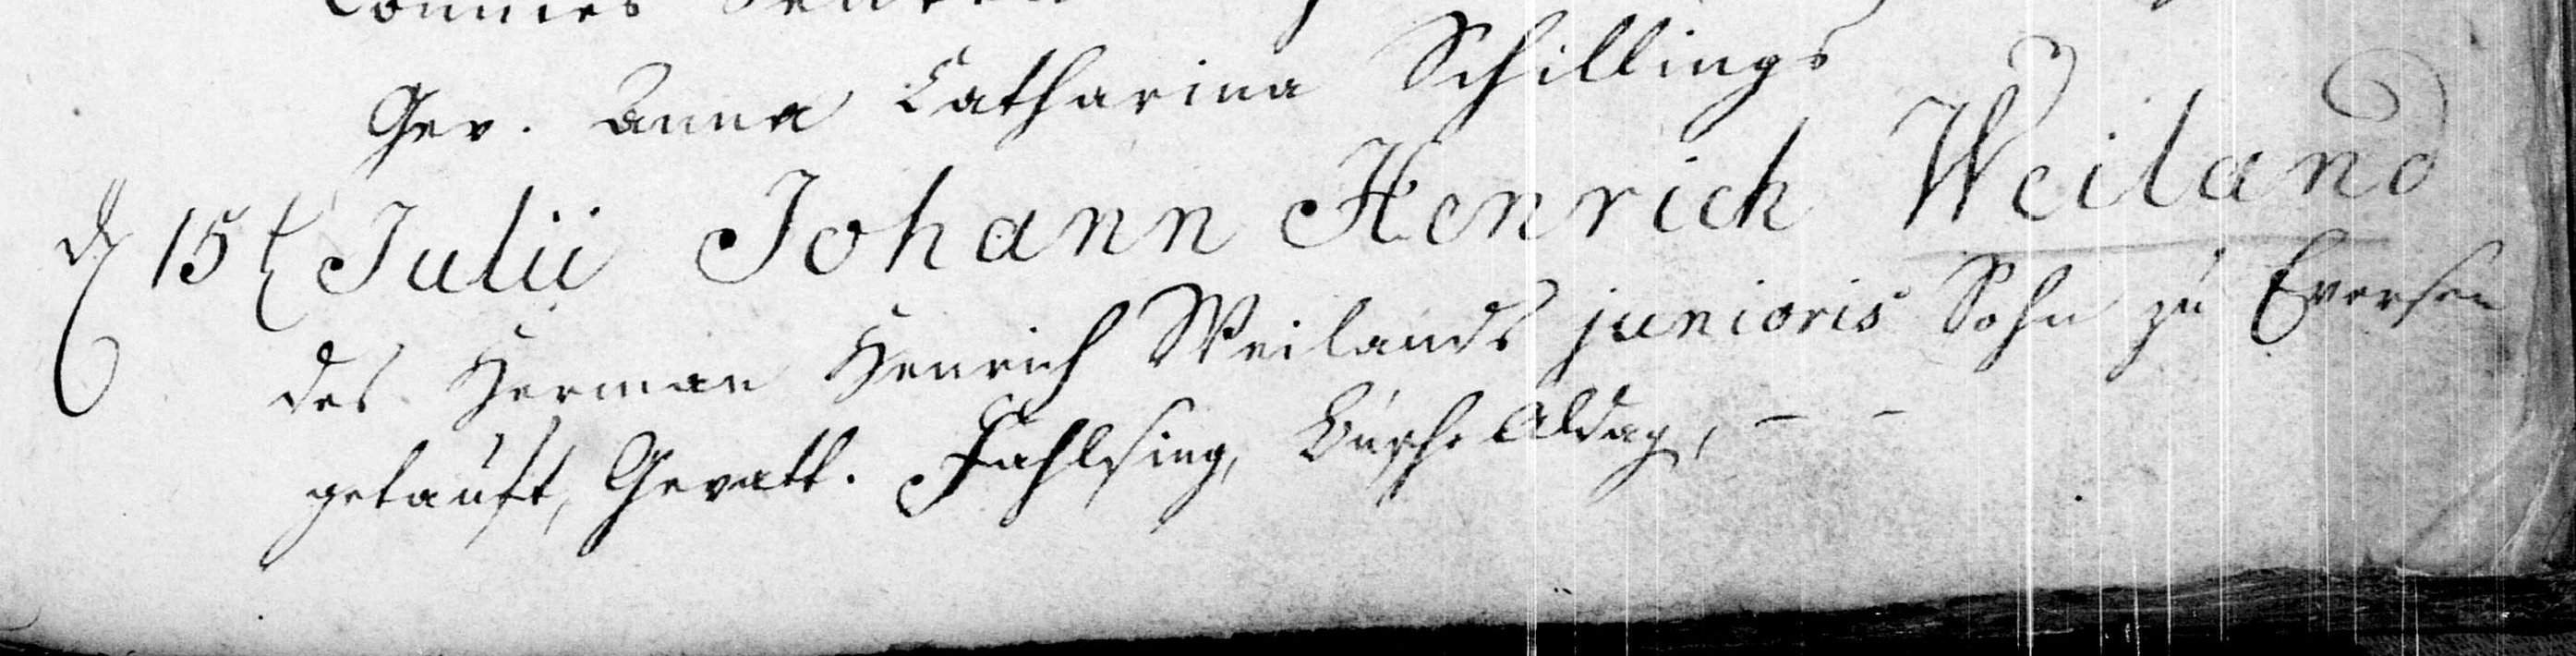 Gev. Anna Catharina Schillings
d 15 t Julii Johann Henrich Weiland
des Herman Henrich Weilands junioris Sohn zu Eversen
getauft, Gevatt. Fahlsing, Busche Aldag, — —